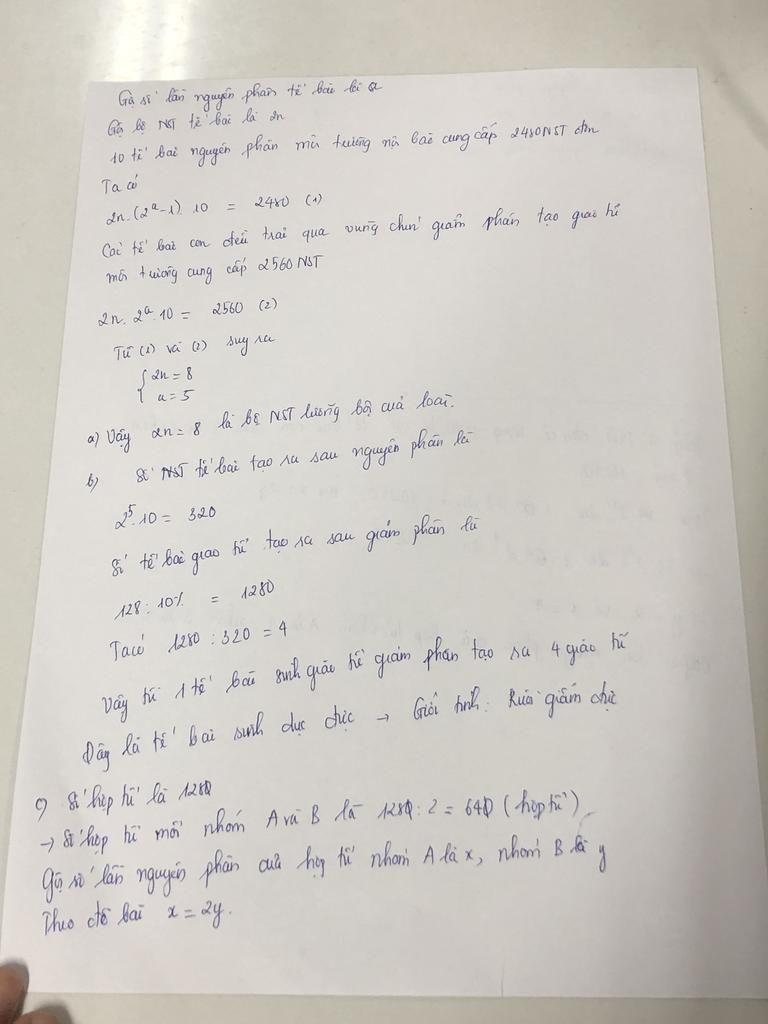 Gọi số lần nguyên phân tế bào là a
Gọi bộ NST tế bào là 2n
10 tế bào nguyên phân môi trường nội bào cung cấp 2480 NST đơn
Ta có
2n.(2^a-1).10 = 2480 (1)
Các tế bào con đều trải qua vùng chín giảm phân tạo giao tử
môi trường cung cấp 2560 NST
2n.2^a.10 = 2560 (2)
Từ (1) và (2) suy ra
{ 2n = 8
a = 5
a) Vậy 2n = 8 là bộ NST lưỡng bội của loài.
b) Số NST tế bào tạo ra sau nguyên phân là
2^5.10 = 320
Số tế bào giao tử tạo ra sau giảm phân là
128 : 10% = 1280
Ta có 1280 : 320 = 4
Vậy từ 1 tế bào sinh giao tử giảm phân tạo ra 4 giao tử
Đây là tế bào sinh dục đực → Giới tính: Ruồi giấm đực
c) Số hợp tử là 128
→ Số hợp tử mỗi nhóm A và B là 128 : 2 = 64 (hợp tử)
Gọi số lần nguyên phân của hợp tử nhóm A là x, nhóm B là y
Theo đề bài x = 2y.